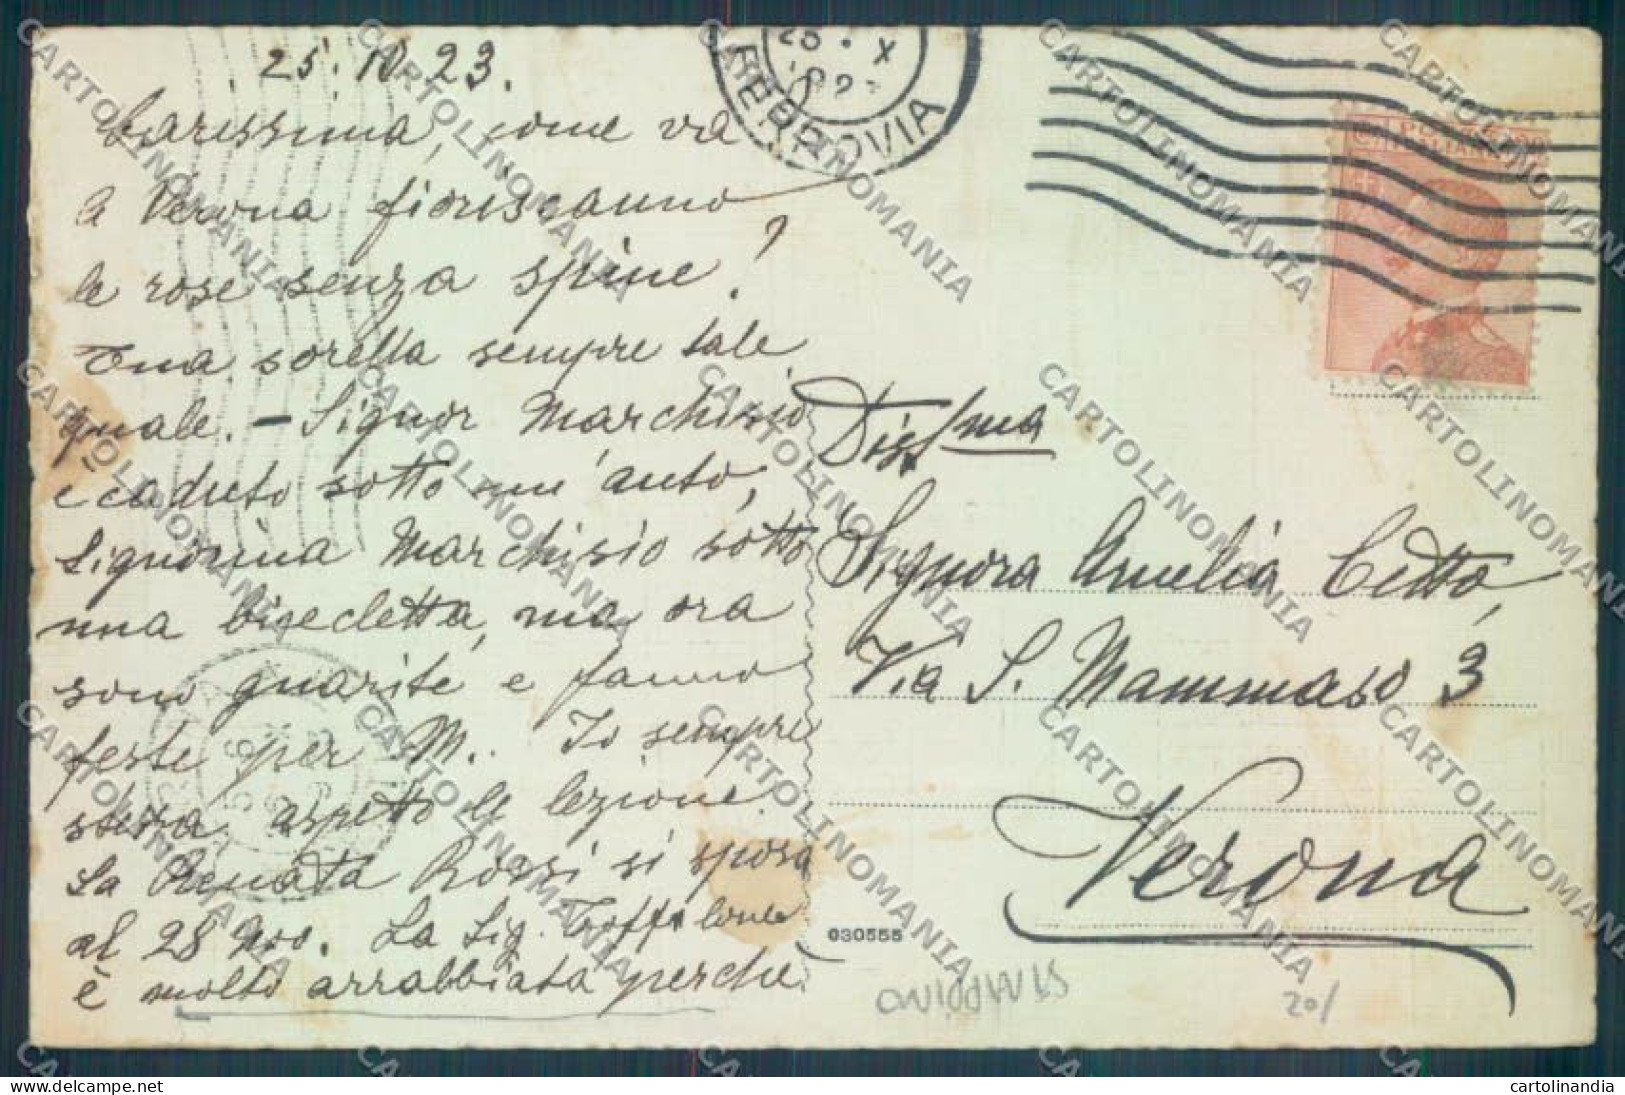 25.10.23.
Carissima, come va
a Verona fioriscanno
le rose senza spine?
Tua sorella sempre tale
quale. - Signor Marchisio
è caduto sotto un'auto,
Signorina Marchisio sotto
una bicecletta, ma ora
sono guarite e fanno
feste per M.. Io sempre
stessa aspetto le lezione.
La Renata Rossi si sposa
al 28 Nov. La Sig. Toffalone
è molto arrabbiata perchè
FERROVIA
POSTE
ITALIANE
Diss/ma
Signora Amelia Cetto,
Via S. Mammaso 3
Verona
030555
20/
CARTOLINOMANIA
cartolinandia